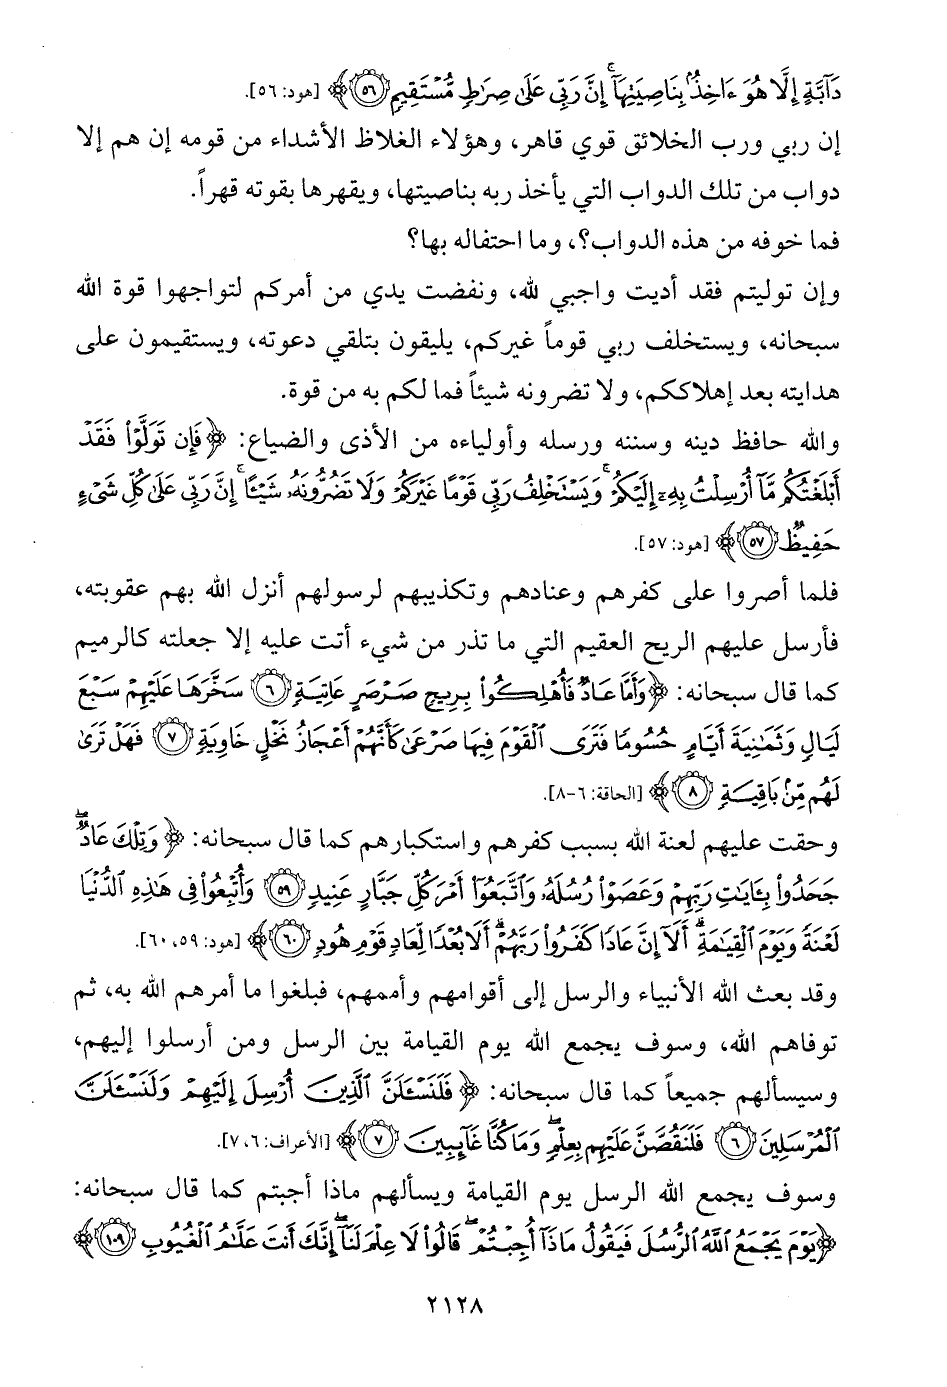 دَآبَّةٍ إِلَّا هُوَ ءَاخِذٌۢ بِنَاصِيَتِهَآۚ إِنَّ رَبِّى عَلَىٰ صِرَٰطٍ مُّسْتَقِيمٍ (٥٦)﴾ [هود: ٥٦].
إن ربي ورب الخلائق قوي قاهر، وهؤلاء الغلاظ الأشداء من قومه إن هم إلا
دواب من تلك الدواب التي يأخذ ربه بناصيتها، ويقهرها بقوته قهراً.
فما خوفه من هذه الدواب؟، وما احتفاله بها؟
وإن توليتم فقد أديت واجبي لله، ونفضت يدي من أمركم لتواجهوا قوة الله
سبحانه، ويستخلف ربي قوماً غيركم، يليقون بتلقي دعوته، ويستقيمون على
هدايته بعد إهلاككم، ولا تضرونه شيئاً فما لكم به من قوة.
والله حافظ دينه وسننه ورسله وأولياءه من الأذى والضياع: ﴿فَإِن تَوَلَّوْا۟ فَقَدْ
أَبْلَغْتُكُم مَّآ أُرْسِلْتُ بِهِۦٓ إِلَيْكُمْۚ وَيَسْتَخْلِفُ رَبِّى قَوْمًا غَيْرَكُمْ وَلَا تَضُرُّونَهُۥ شَيْـًٔاۚ إِنَّ رَبِّى عَلَىٰ كُلِّ شَىْءٍ
حَفِيظٌ (٥٧)﴾ [هود: ٥٧].
فلما أصروا على كفرهم وعنادهم وتكذيبهم لرسولهم أنزل الله بهم عقوبته،
فأرسل عليهم الريح العقيم التي ما تذر من شيء أتت عليه إلا جعلته كالرميم
كما قال سبحانه: ﴿وَأَمَّا عَادٌ فَأُهْلِكُوا۟ بِرِيحٍ صَرْصَرٍ عَاتِيَةٍ (٦) سَخَّرَهَا عَلَيْهِمْ سَبْعَ
لَيَالٍ وَثَمَٰنِيَةَ أَيَّامٍ حُسُومًا فَتَرَى ٱلْقَوْمَ فِيهَا صَرْعَىٰ كَأَنَّهُمْ أَعْجَازُ نَخْلٍ خَاوِيَةٍ (٧) فَهَلْ تَرَىٰ
لَهُم مِّنۢ بَاقِيَةٍ (٨)﴾ [الحاقة: ٦-٨].
وحقت عليهم لعنة الله بسبب كفرهم واستكبارهم كما قال سبحانه: ﴿وَتِلْكَ عَادٌۖ
جَحَدُوا۟ بِـَٔايَٰتِ رَبِّهِمْ وَعَصَوْا۟ رُسُلَهُۥ وَٱتَّبَعُوٓا۟ أَمْرَ كُلِّ جَبَّارٍ عَنِيدٍ (٥٩) وَأُتْبِعُوا۟ فِى هَٰذِهِ ٱلدُّنْيَا
لَعْنَةً وَيَوْمَ ٱلْقِيَٰمَةِۗ أَلَآ إِنَّ عَادًا كَفَرُوا۟ رَبَّهُمْۗ أَلَا بُعْدًا لِّعَادٍ قَوْمِ هُودٍ (٦٠)﴾ [هود: ٥٩، ٦٠].
وقد بعث الله الأنبياء والرسل إلى أقوامهم وأممهم، فبلغوا ما أمرهم الله به، ثم
توفاهم الله، وسوف يجمع الله يوم القيامة بين الرسل ومن أرسلوا إليهم،
وسيسألهم جميعاً كما قال سبحانه: ﴿فَلَنَسْـَٔلَنَّ ٱلَّذِينَ أُرْسِلَ إِلَيْهِمْ وَلَنَسْـَٔلَنَّ
ٱلْمُرْسَلِينَ (٦) فَلَنَقُصَّنَّ عَلَيْهِم بِعِلْمٍۖ وَمَا كُنَّا غَآئِبِينَ (٧)﴾ [الأعراف: ٦، ٧].
وسوف يجمع الله الرسل يوم القيامة ويسألهم ماذا أجبتم كما قال سبحانه:
﴿يَوْمَ يَجْمَعُ ٱللَّهُ ٱلرُّسُلَ فَيَقُولُ مَاذَآ أُجِبْتُمْۖ قَالُوا۟ لَا عِلْمَ لَنَآۖ إِنَّكَ أَنتَ عَلَّٰمُ ٱلْغُيُوبِ (١٠٩)﴾
٢١٢٨